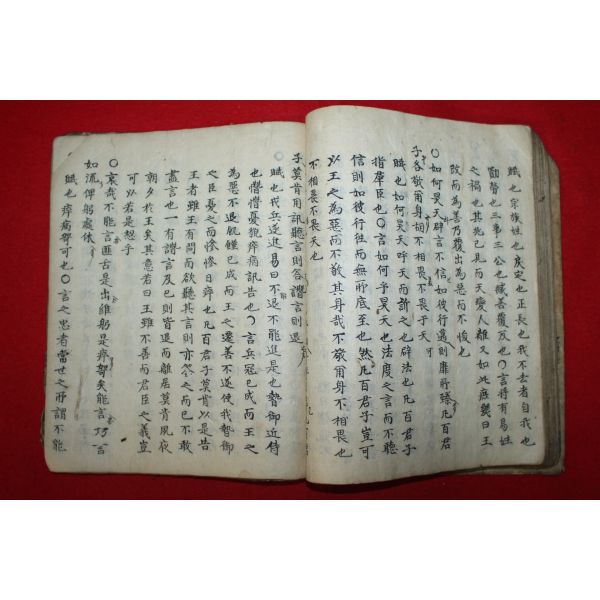 賦也宗族姓也戾定也正長也我不去者自我也
勩勞也三事三公也臧善覆反也○言將有易姓
之禍也其兆已見而天變人離又如此庶幾曰王
改而為善乃覆出為惡而不悛也
○如何昊天辟言不信如彼行邁則靡所臻凡百君
子各敬爾身胡不相畏不畏于天
賦也如何昊天呼天而訴之也辟法也凡百君子
指羣臣也○言如何乎昊天也法度之言而不聽
信則如彼行往而無所底至也然凡百君子豈可
以王之為惡而不敬其身哉不敬爾身不相畏也
不相畏不畏天也
子莫肯用訊聽言則答譖言則退
賦也戎兵遂進易曰不退不能進是也暬御近侍
也憯憯憂貌瘁病訊告也○言兵寇已成而王之
為惡不退飢饉已成而王之遷善不遂使我暬御
之臣憂之而慘慘日瘁也凡百君子莫肯以是告
王者雖王有問而欲聽其言則亦答之而已不敢
盡言也一有譖言及已則皆退而離居莫肯夙夜
朝夕於王矣其意若曰王雖不善而君臣之義豈
可以若是恝乎
○哀哉不能言匪舌是出維躬是瘁哿矣能言巧言
如流俾躬處休
賦也瘁病哿可也○言之忠者當世之所謂不能